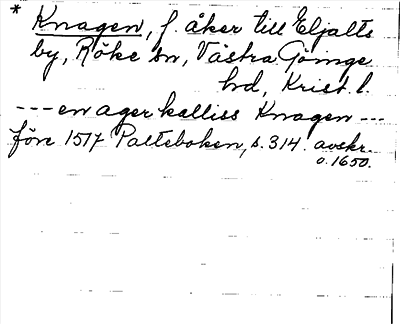 * Knagen, f. åker till Eljalts
by, Röke sn, Västra Göinge
hd, Krist. l.
--- en ager kalliss Knagen ---
före 1517 Palteboken, s. 314. avskr.
o. 1650.